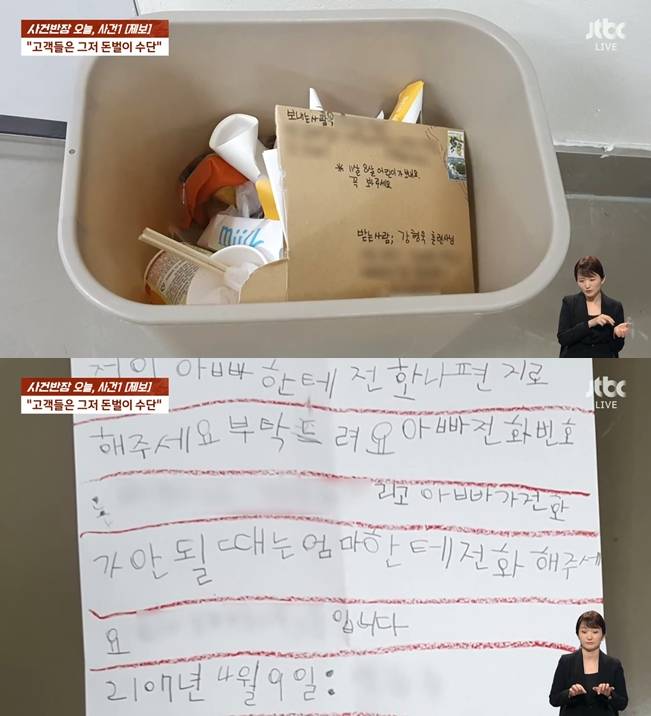 사건반장 오늘, 사건1 [제보]
"고객들은 그저 돈벌이 수단"
jtbc
LIVE
보내는사람
* 11살 8살 어린이가 보내요.
꼭 봐주세요
받는사람; 강형욱 훈련사님
milk
사건반장 오늘, 사건1 [제보]
"고객들은 그저 돈벌이 수단"
jtbc
LIVE
저의 아빠한테 전화나편지로
해주세요부탁드려요아빠전화번호
리고 아빠가전화
가 안될 때는 엄마한테전화 해주세
요 입니다
2107년 4월 9일: